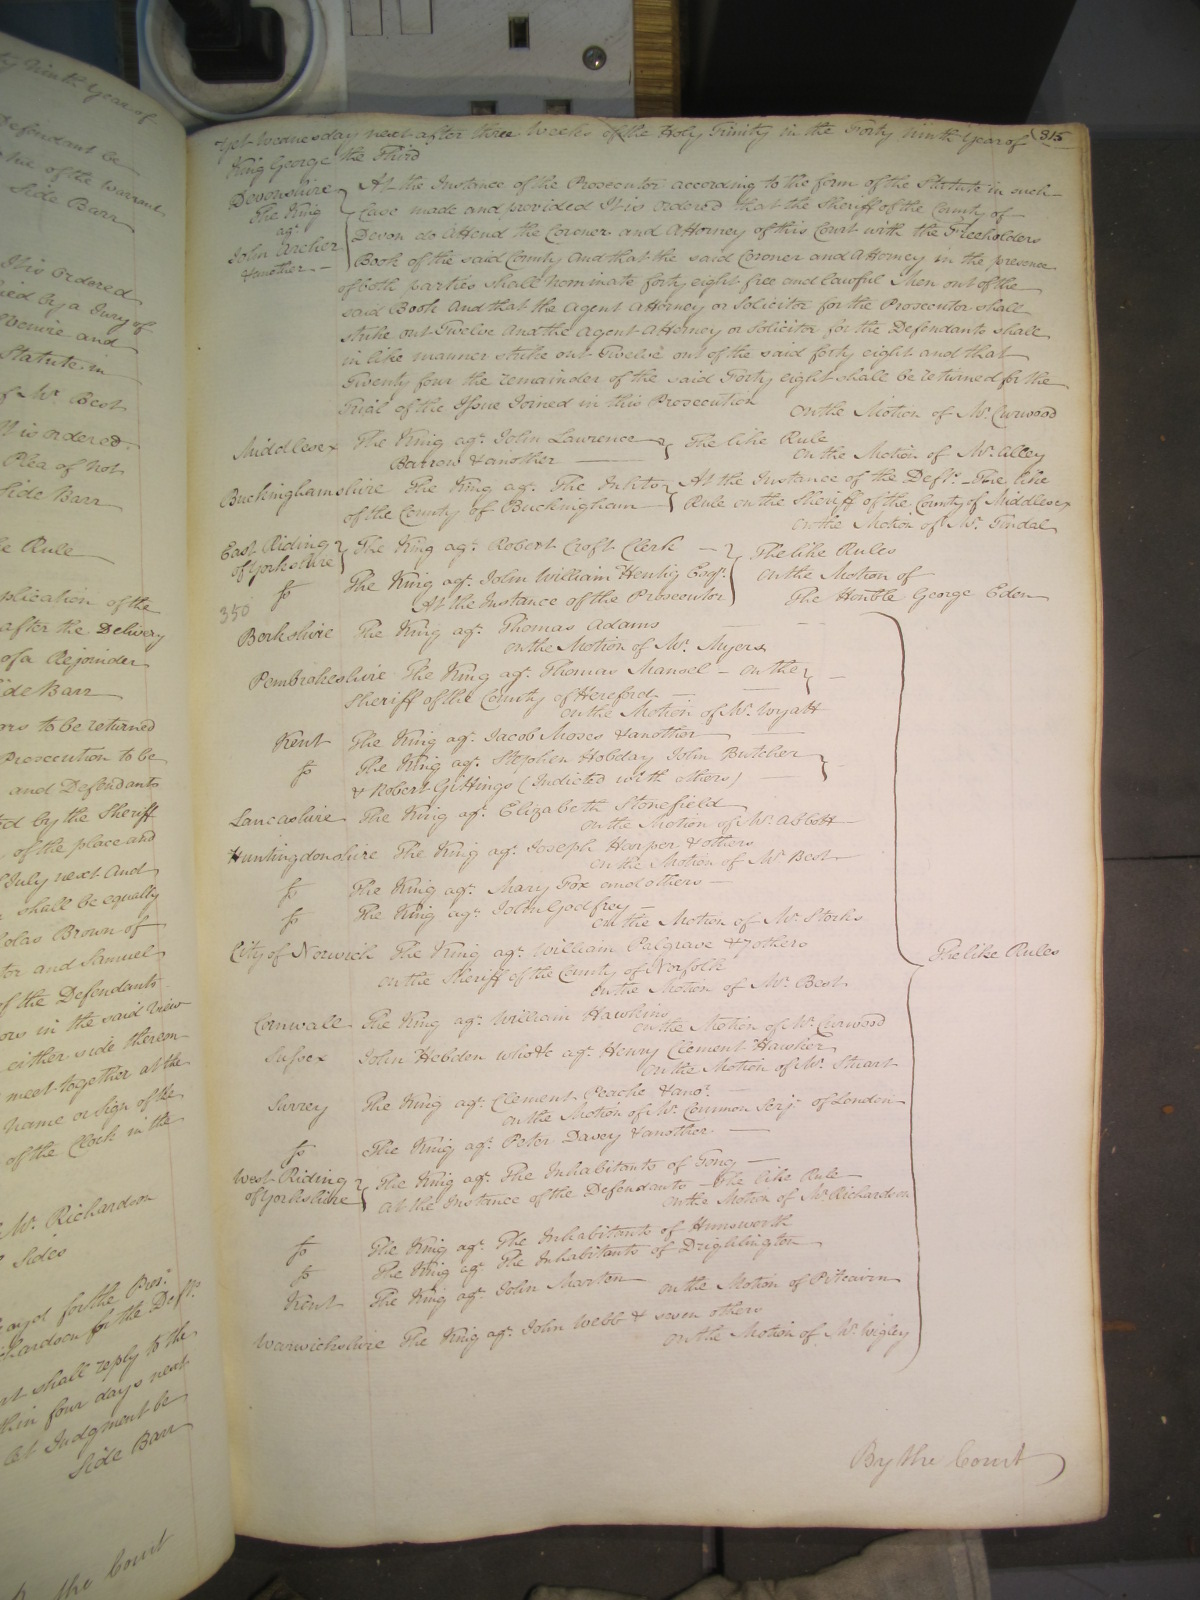 ty Ninth Year of
Defendant be
of the Warrant
Side Barr
It is ordered
ied by a Jury of
Venire and
Statute in
of Mr. Best
It is ordered
Plea of not
Side Barr
Rule
plication of the
after the Delivery
of a Rejoinder
Side Barr
to be returned
Prosecution to be
and Defendants
ed by the Sheriff
of the place and
July next And
shall be equally
olas Brown of
tor and Samuel
of the Defendants
ors in the said View
either side thereon
meet together at the
Name or Sign of the
of the Clock in the
Mr. Richardson
Sides
for the Pros.
hardson for the Defts.
shall reply to the
thin four days next
let Judgment be
Side Barr
the Court
315
Yet Wednesday next after three Weeks of the Holy Trinity in the Forty Ninth Year of
King George the Third
Devonshire
The King
agt.
John Archer
& another
At the Instance of the Prosecutor according to the form of the Statute in such
Case made and provided It is ordered that the Sheriff of the County of
Devon do Attend the Coroner and Attorney of this Court with the Freeholders
Book of the said County And that the said Coroner and Attorney in the presence
of both parties shall nominate forty eight free and lawful Men out of the
said Book And that the Agent Attorney or Solicitor for the Prosecutor shall
strike out Twelve And the Agent Attorney or Solicitor for the Defendants shall
in like manner strike out Twelve out of the said forty eight and that
Twenty four the remainder of the said Forty eight shall be returned for the
Trial of the Issue Joined in this Prosecution
On the Motion of Mr. Curwood
Middlesex The King agt. John Lawrence The like Rule
Barrow & another On the Motion of Mr. Alley
Buckinghamshire The King agt. The Inhits At the Instance of the Deft. The like
of the County of Buckingham Rule on the Sheriff of the County of Middlesex
On the Motion of Mr. Tindal
East Riding of Yorkshire The King agt. Robert Croft Clerk The like Rules
So The King agt. John William Hentig Esqr. On the Motion of
At the Instance of the Prosecutor The Honble George Eden
350
Berkshire The King agt. Thomas Adams
On the Motion of Mr. Myers
Pembrokeshire The King agt. Thomas Mansel - on the
Sheriff of the County of Hereford
On the Motion of Mr. Wyatt
Kent The King agt. Jacob Moses & another
So The King agt. Stephen Hobday John Butcher
& Robert Gittings (Indicted with others)
Lancashire The King agt. Elizabeth Stonefield
On the Motion of Mr. Abbott
Huntingdonshire The King agt. Joseph Harper & others
On the Motion of Mr. Best
So The King agt. Mary Fox and others
So The King agt. John Godfrey
On the Motion of Mr. Storks
City of Norwich The King agt. William Palgrave & 7 others
on the Sheriff of the County of Norfolk
On the Motion of Mr. Best
The like Rules
Cornwall The King agt. William Hawkins
On the Motion of Mr. Curwood
Sussex John Hebden who &c agt. Henry Clement Hawker
On the Motion of Mr. Stuart
Surrey The King agt. Clement Peache & anor.
On the Motion of Mr. Common Serjt. of London
So The King agt. Peter Davey & another
West Riding of Yorkshire The King agt. The Inhabitants of Tong
At the Instance of the Defendants The like Rule
On the Motion of Mr. Richardson
So The King agt. The Inhabitants of Hunsworth
So The King agt. The Inhabitants of Drighlington
Kent The King agt. John Marton On the Motion of Pitcairn
Warwickshire The King agt. John Webb & seven others
On the Motion of Mr. Wigley
By the Court